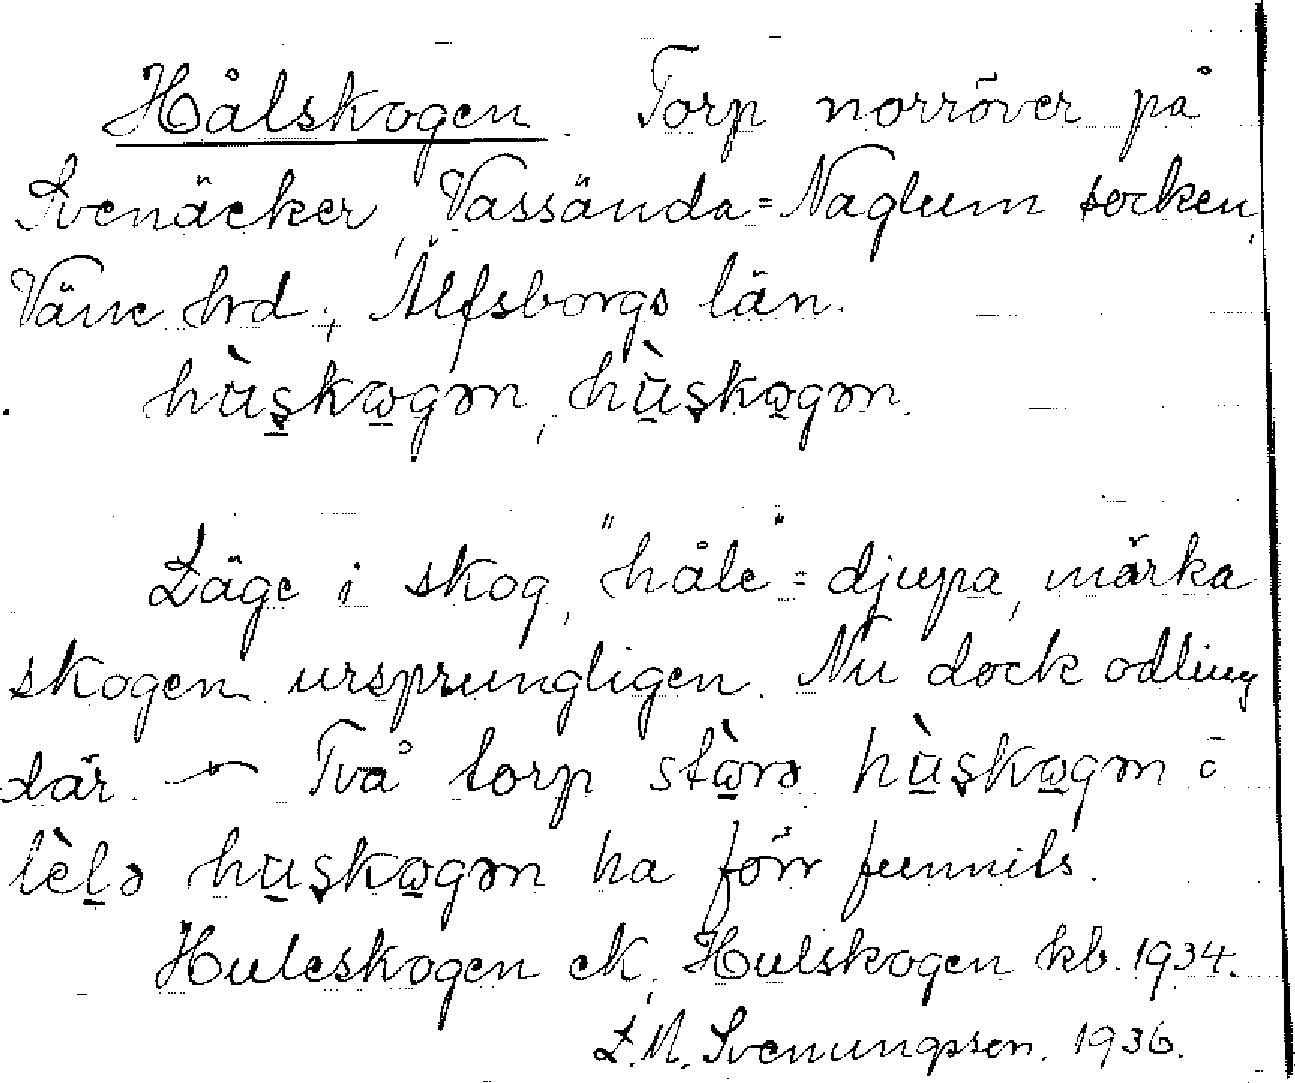 Hålskogen. Torp norröver på
Svenäcker, Vassända-Naglum socken,
Väne hrd., Älfsborgs län.
hùʂkωgən, hùʂkωgən.
Läge i skog, "håle" = djupa, mörka
skogen ursprungligen. Nu dock odling
där. — Två torp stὼrə hùʂkωgən å
lèlə hùʂkωgən ha förr funnits.
Huleskogen ek, Hulskogen kb. 1934.
L.M. Svenungsson. 1936.